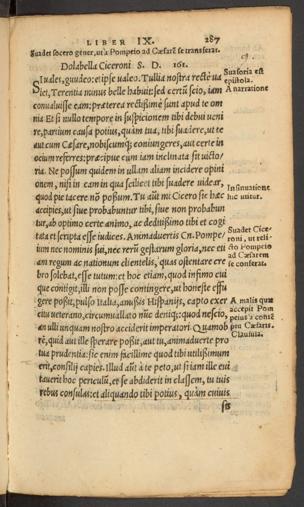 LIBER IX. 287
Suadet socero gener, ut à Pompeio ad Cæsarē se transferat.
Dolabella Ciceroni S. D. 161.
SI uales, gaudeo: et ipse ualeo. Tullia nostra rectè ua
let, Terentia minus belle habuit: sed certū scio, iam
conualuisse eam: præterea rectissimè sunt apud te om
nia. Et si nullo tempore in suspicionem tibi debui ueni
re, partium causa potius, quàm tua, tibi suadere, ut te
aut cum Cæsare, nobiscumq́; coniungeres, aut certe in
ocium referres: præcipue cum iam inclinata sit uicto/
ria. Ne possum quidem in ullam aliam incidere opini
onem, nisi in eam in qua scilicet tibi suadere uidear,
quod pie tacere nō possum. Tu aūt mi Cicero sic hæc
accipies, ut siue probabuntur tibi, siue non probabun
tur, ab optimo certe animo, ac deditissimo tibi et cogi
tata et scripta esse iudices. Animaduertis Cn. Pompe/
ium nec nominis sui, nec rerū gestarum gloria, nec eti
am regum ac nationum clientelis, quas ostentare cre
bro solebat, esse tutum: et hoc etiam, quod infimo cui
que contigit, illi non posse contingere, ut honeste effu
gere possit, pulso Italia, amissis Hispanijs, capto exer
citu ueterano, circumuallato nūc deniq;: quod nescio,
an ulli unquam nostro acciderit imperatori. Quamob
rē, quid aut ille sperare possit, aut tu, animaduerte pro
tua prudentia: sic enim facillime quod tibi utilissimum
erit, consilij capies. Illud aūt à te peto, ut si iam ille eui
tauerit hoc periculū, et se abdiderit in classem, tu tuis
rebus consulas: et aliquando tibi potius, quàm cuiuis
sis
Suasoria est
epistola.
A narratione
Insinuatione
hic utitur.
Suadet Cice-
roni, ut reli-
cto Pompeio
ad Cæsarem
se conferat.
A malis quæ
accepit Pom
peius à
Cæsaris.
Clausula.